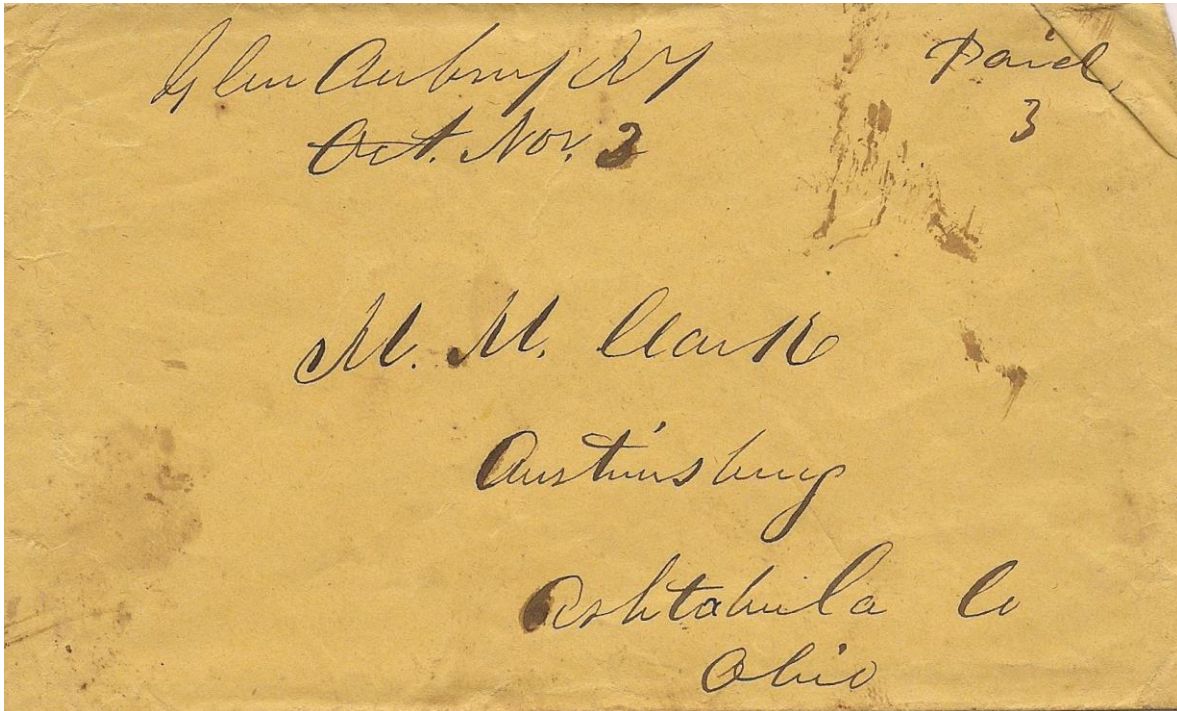 Glen Aubrey NY Paid
Oct. Nov. 2 3
M. M. Clark
Austinsburg
Ashtabula Co
Ohio